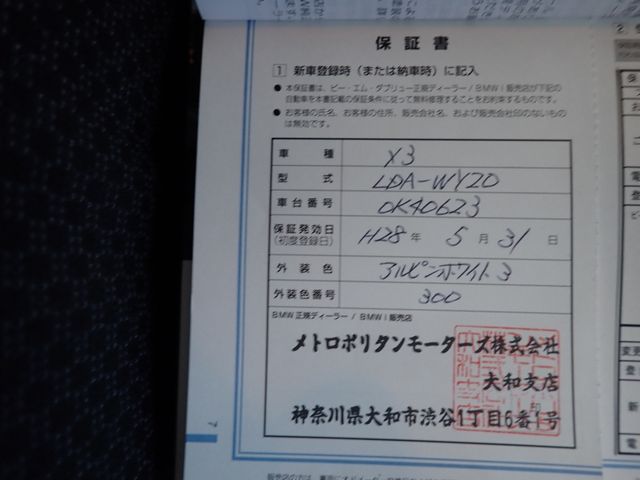 保証書
1 新車登録時（または納車時）に記入
● 本保証書は、ビー・エム・ダブリュー正規ディーラー / BMW i 販売店が下記の
自動車を本書記載の保証条件に従って無料修理することをお約束するものです。
● お客様の氏名、お客様の住所、販売会社名、および販売会社印のないもの
は無効です。
車種 X3
型式 LDA-WY20
車台番号 0K40623
保証発効日 H28年 5月 31日
（初度登録日）
外装色 アルピンホワイト3
外装色番号 300
BMW 正規ディーラー / BMW i 販売店
メトロポリタンモーターズ株式会社
大和支店
神奈川県大和市渋谷1丁目6番1号
7